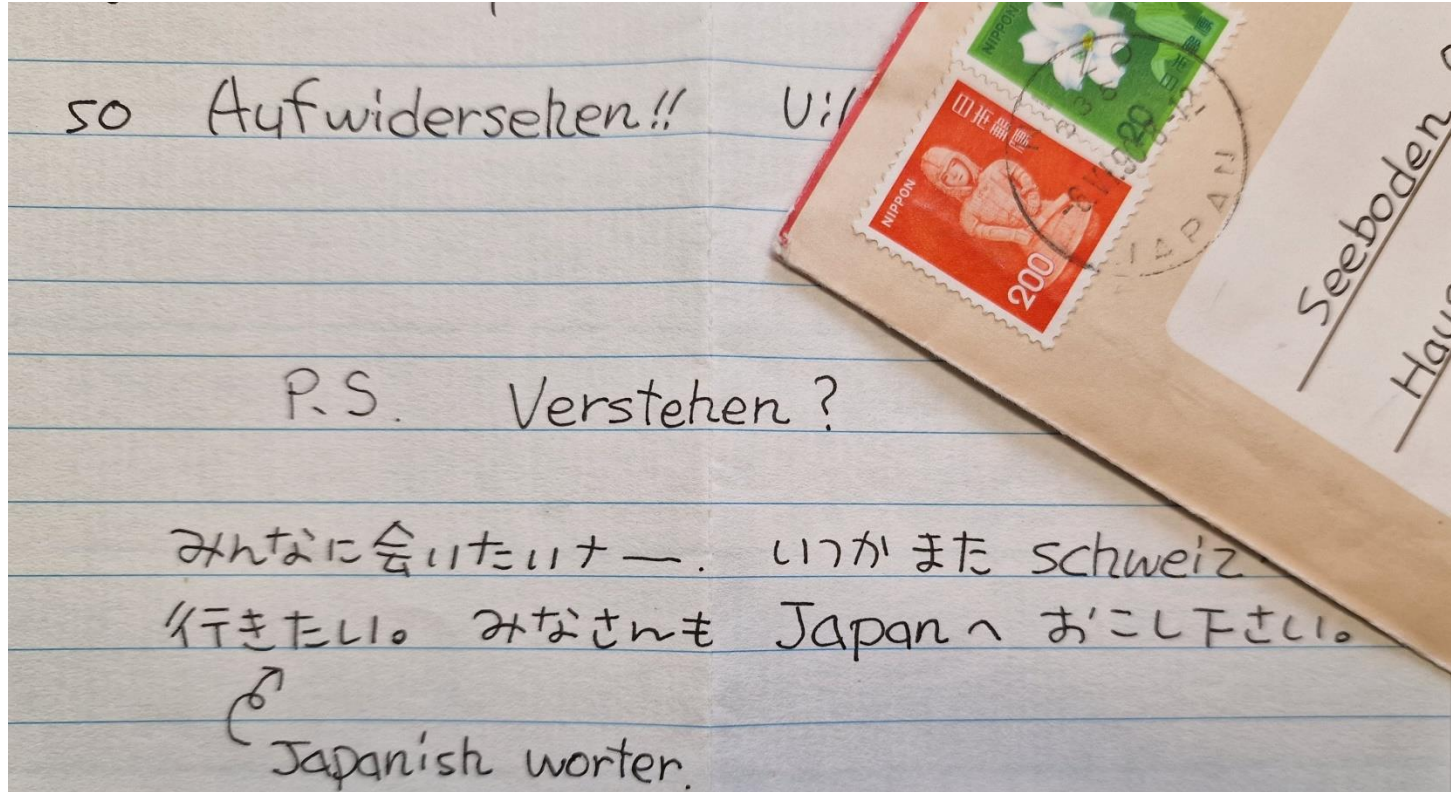 so Aufwidersehen!!
P.S. Verstehen?
みんなに会いたいナー. いつかまた schweiz
行きたい。 みなさんも Japanへ おこし下さい。
Japanish worter.
NIPPON
日本郵便
20
NIPPON
日本郵便
200
JAPAN
Seeboden